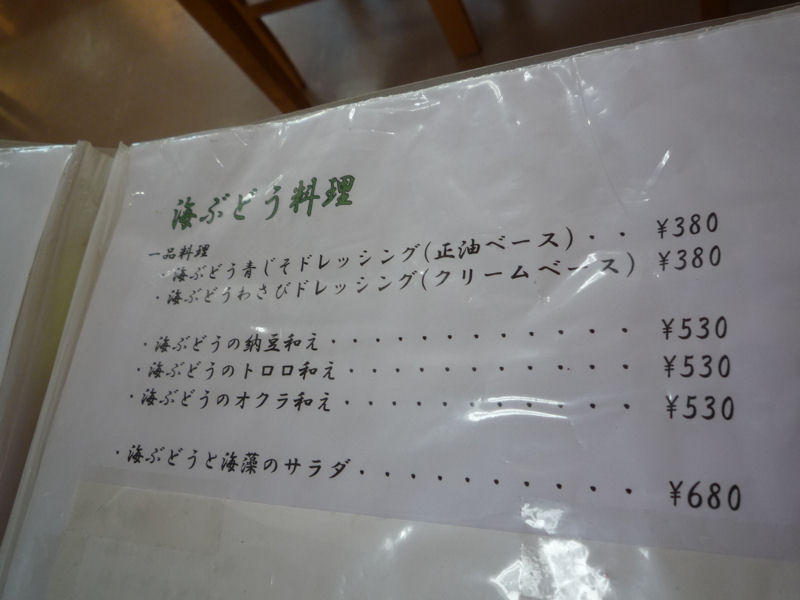 海ぶどう料理
一品料理
・海ぶどう青じそドレッシング(正油ベース)・・ ¥380
・海ぶどうわさびドレッシング(クリームベース) ¥380
・海ぶどうの納豆和え・・・・・・・・・・・・ ¥530
・海ぶどうのトロロ和え・・・・・・・・・・・ ¥530
・海ぶどうのオクラ和え・・・・・・・・・・・ ¥530
・海ぶどうと海藻のサラダ・・・・・・・・・・・ ¥680